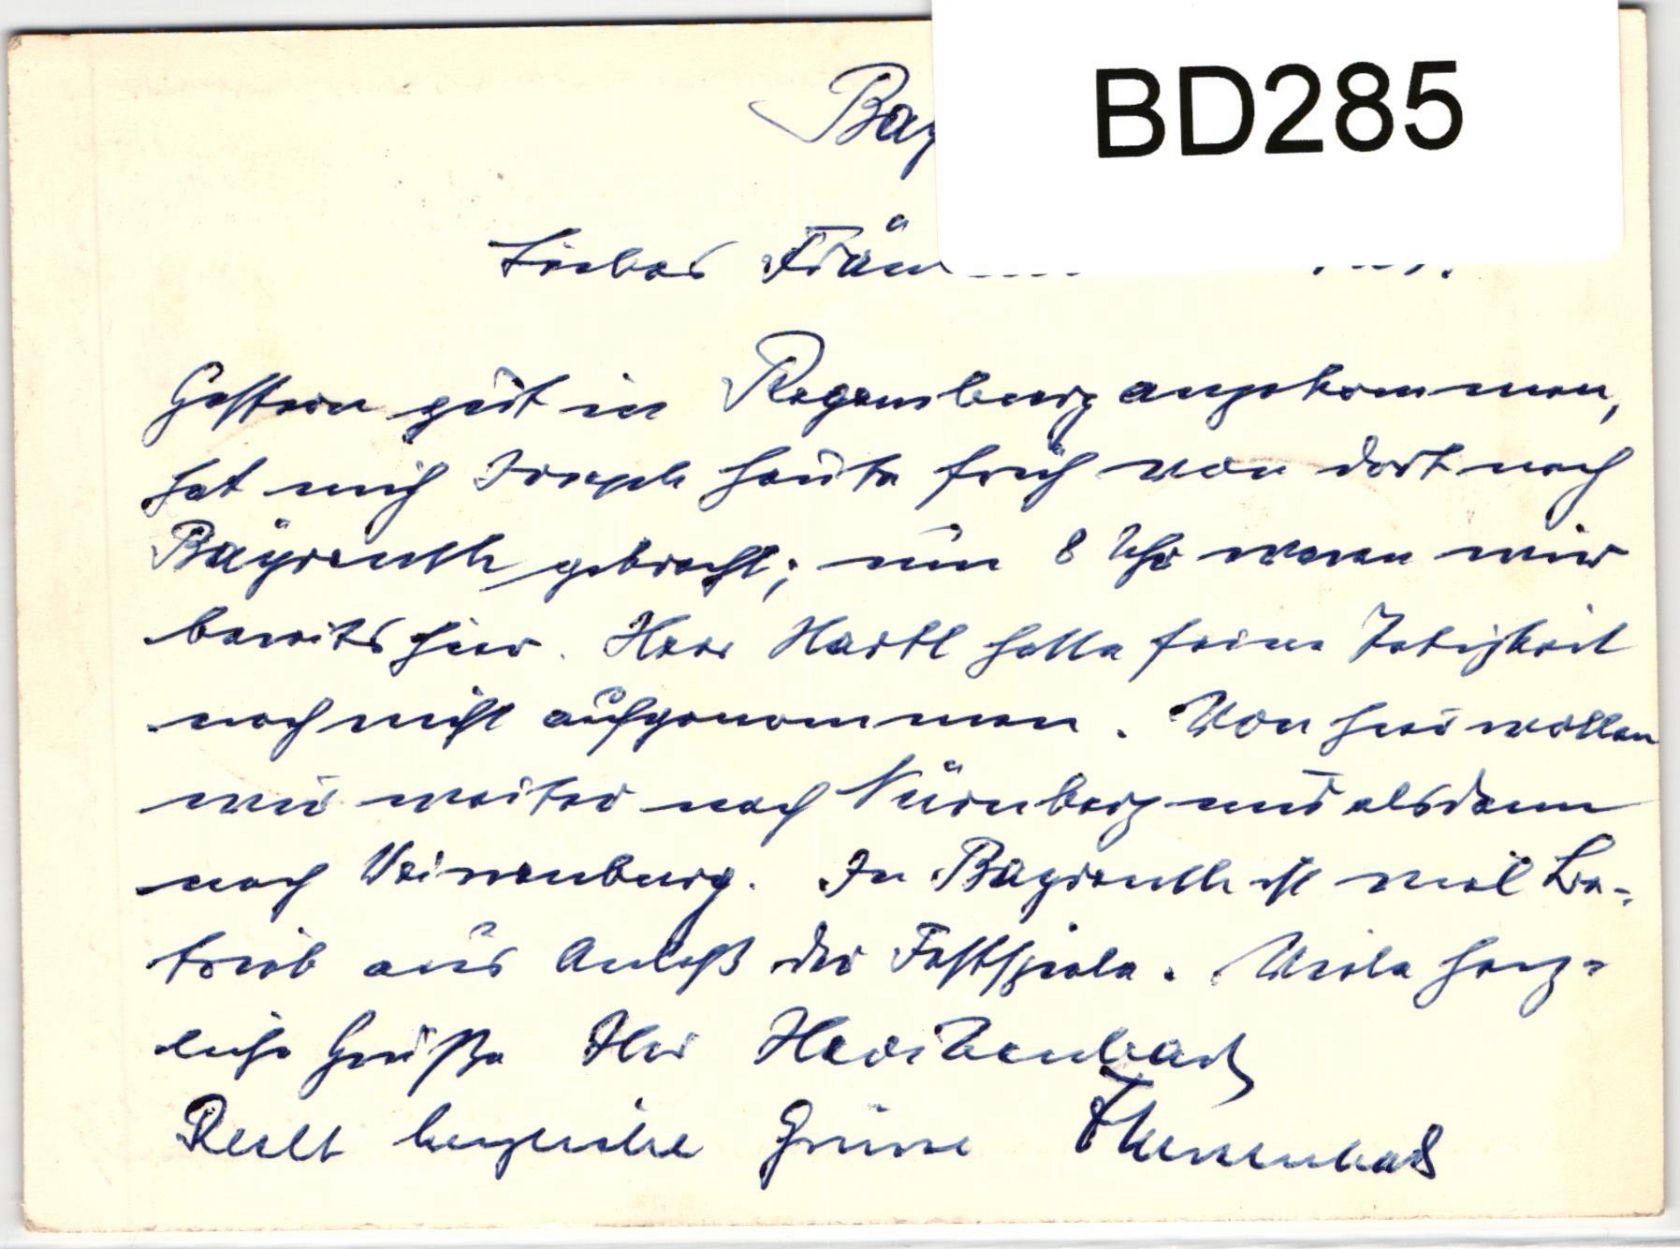 BD285
Bay
Liebes Fräu
Gestern gut in Regensburg angekommen,
hat mich Joseph heute früh von dort nach
Bayreuth gebracht; um 8 Uhr waren wir
bereits hier. Herr Hartl hatte seine Tätigkeit
noch nicht aufgenommen. Von hier wollen
wir weiter nach Nürnberg und alsdann
nach Weissenburg. In Bayreuth ist viel Be-
trieb aus Anlaß der Festspiele. Viele herz-
liche Grüße Ihr
Recht herzliche Grüsse